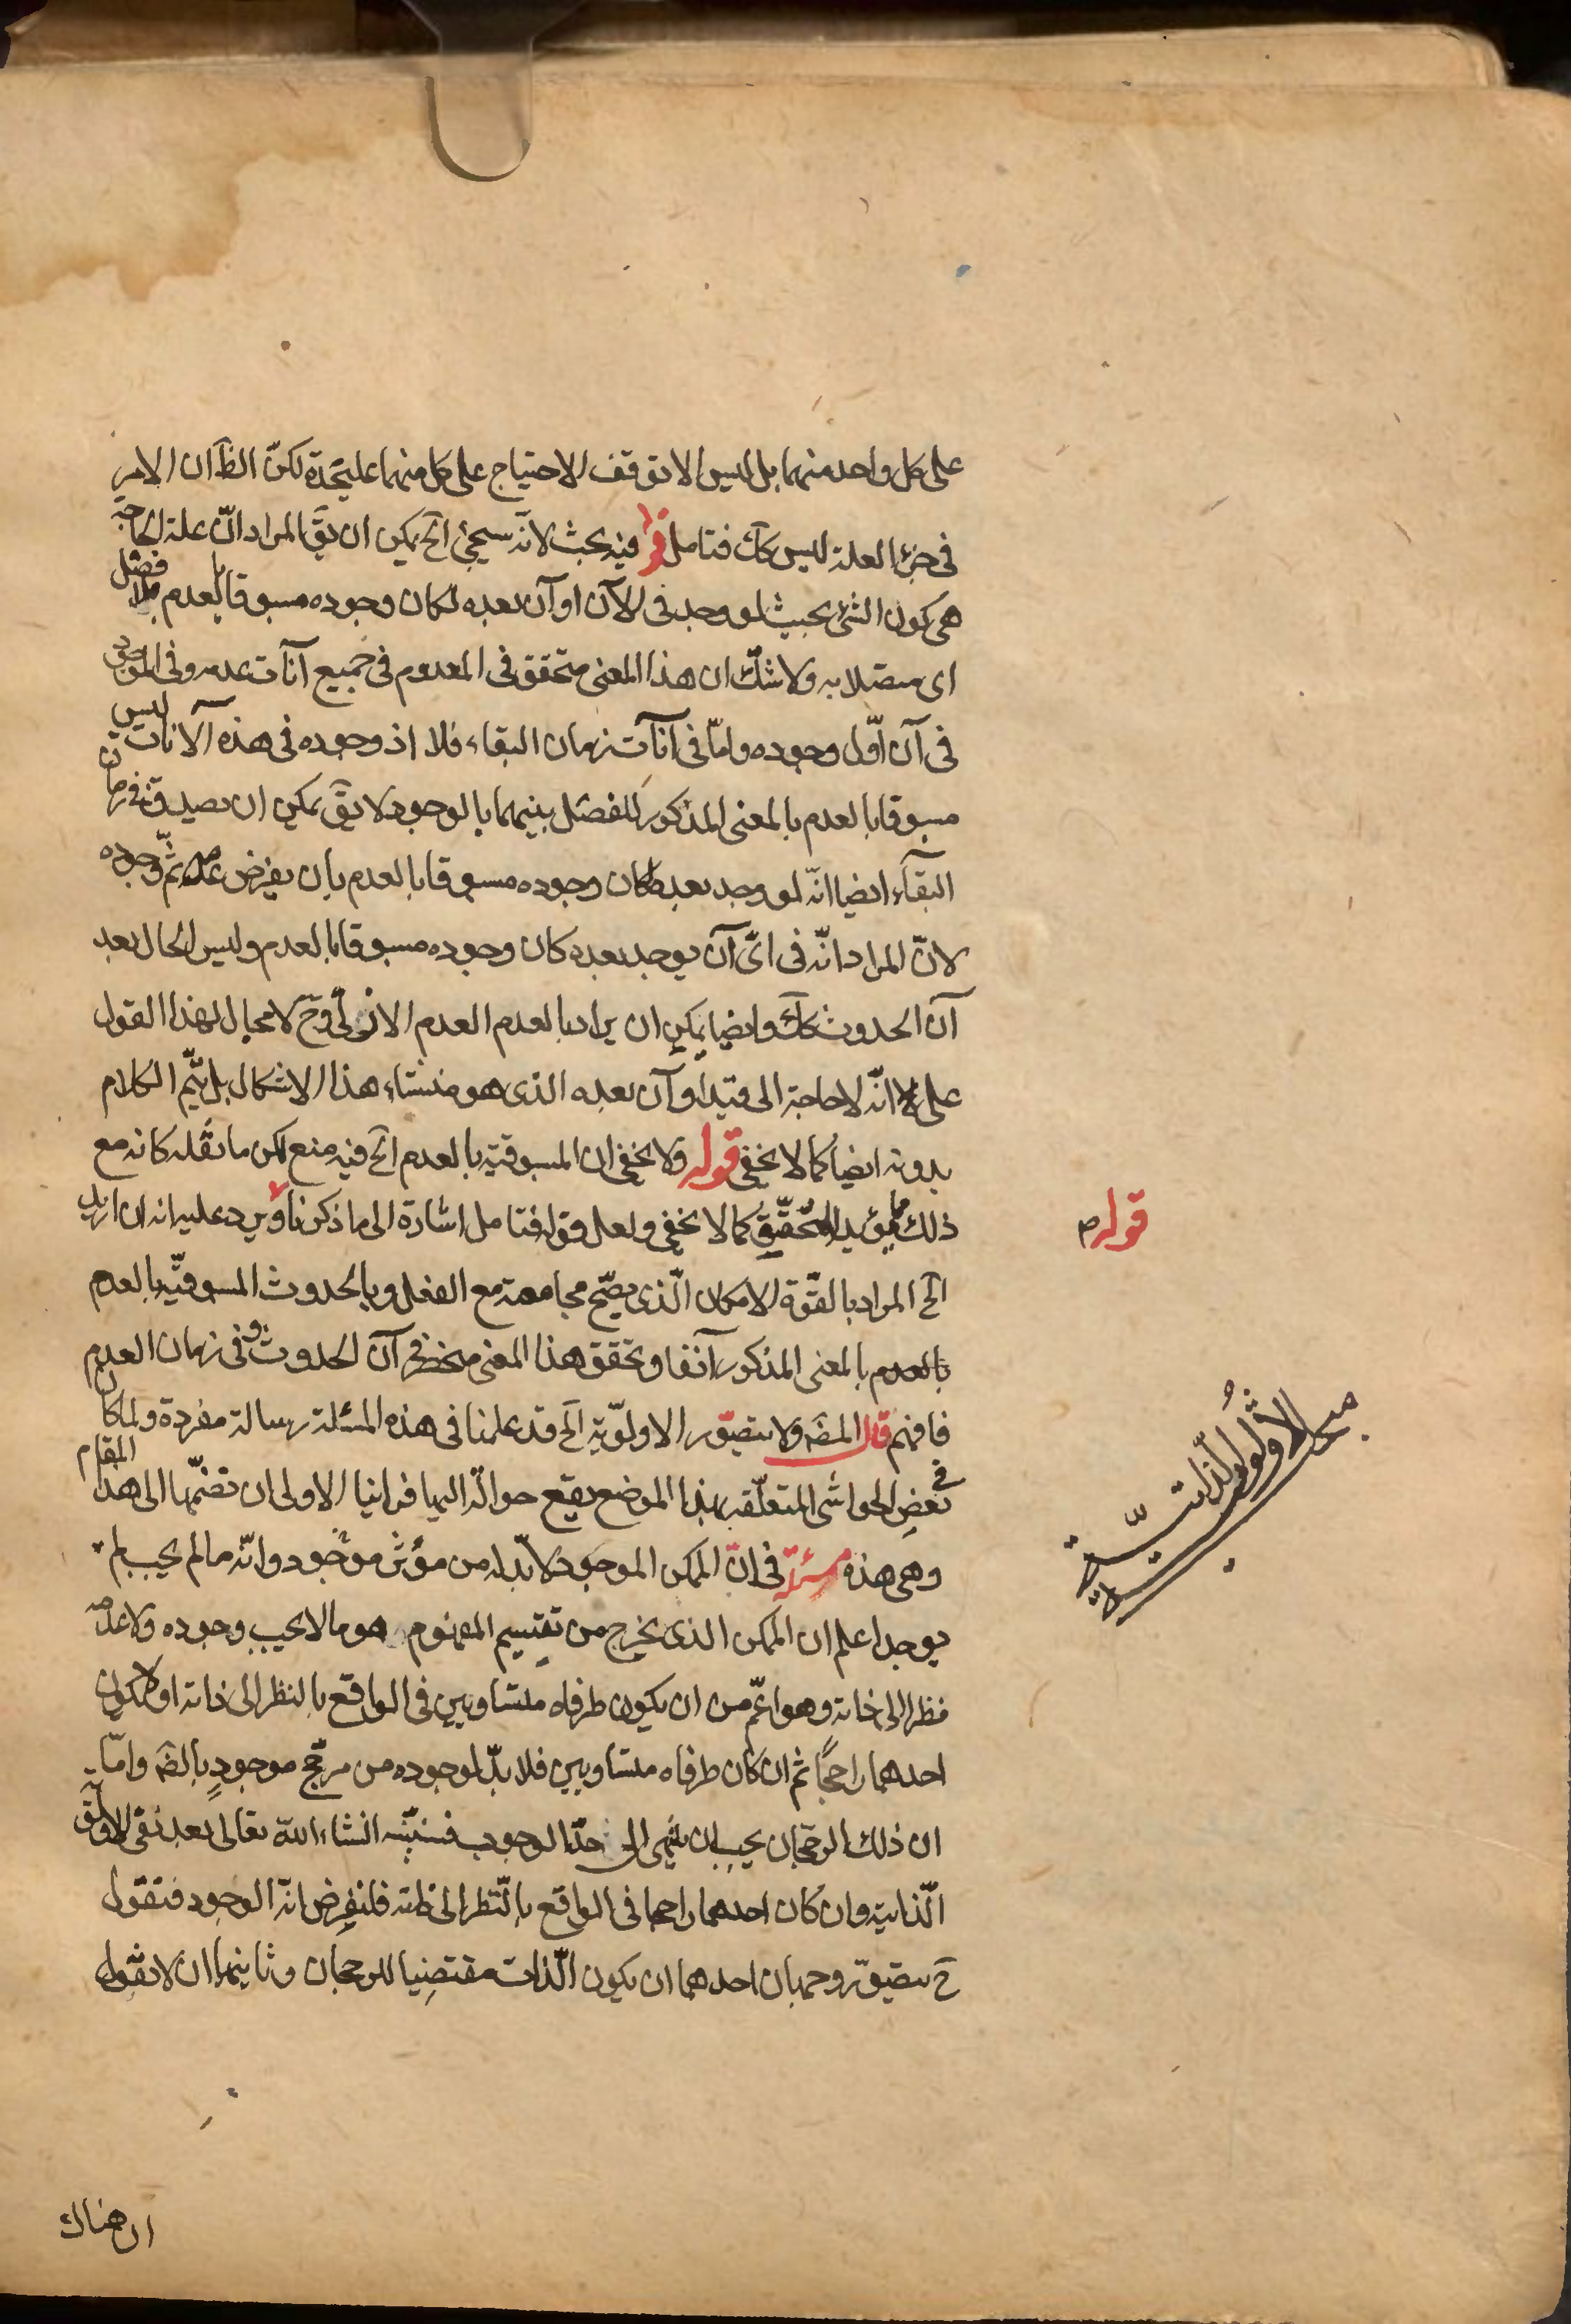 على كل واحد منهما بل ليس الا توقف الاحتياج على كل منهما عليحدة لكنّ الظآ ان الامر
فى جزء العلة ليس كآك فتامل قوله فيه بحث لانّه سيجئ آلخ يمكن ان يقَ المراد انّ علة الحاجة
هى كون الشئ بحيث لو وجد فى الآن او آن بعده لكان وجوده مسبوقا بالعدم بلا فصل
اى متصلا به ولا شكّ ان هذا المعنى متحقق فى المعدوم فى جميع آنات عدمه وفى الموجود
فى آن اوّل وجوده وامّا فى آنات زمان البقاء فلا اذ وجوده فى هذه الآنات ليس
مسبوقا بالعدم بالمعنى المذكور للفصل بينهما بالوجود لا يقَ يمكن ان يصدق فى زمان
البقاء ايضا انّه لو وجد بعده لكان وجوده مسبوقا بالعدم بان يفرض عدمه ثمّ وجوده
لانّ المراد انّه فى اىّ آن يوجد بعده كان وجوده مسبوقا بالعدم وليس الحال بعد
آن الحدوث كآك وايضا يمكن ان يراد بالعدم العدم الازلىّ وحَ لا مجال لهذا القول
على انّه لا حاجة الى قيد او آن بعده الذى هو منشاء هذا الاشكال بل يتمّ الكلام
بدونه ايضا كما لا يخفى قوله ولا يخفى ان المسبوقية بالعدم آلخ فيه منع لكن ما نقله كانه مع
ذلك مما يؤيد المحقّق كما لا يخفى ولعل قوله فتامل اشارة الى ما ذكرنا ويرد عليه انه ان اريد
آلخ المراد بالقوّة الامكان الّذى يصحّ مجامعته مع الفعل وبالحدوث المسبوقيّة بالعدم
بالعدم بالمعنى المذكور آنفا وتحقق هذا المعنى منحصر فى آن الحدوث وفى زمان العدم
فافهم قال المصَ ولا يتصوّر الاولويّة آلخ قد علمنا فى هذه المسئلة رسالة مفردة ولما كان
فى بعض الحواشى المتعلّقة بهذا الموضع يقع حوالة اليها فراينا الاولى ان نضمّها الى هذا المقام
وهى هذه مسئلة فى انّ الممكن الموجود لا بدّ له من مؤثر موجود وانّه ما لم يجب لم
يوجد اعلم ان الممكن الذى يخرج من تقسيم المفهوم هو ما لا يجب وجوده ولا عدمه
نظرا الى ذاته وهو اعمّ من ان يكون طرفاه متساويين فى الواقع بالنظر الى ذاته او يكون
احدهما راجحًا ثم ان كان طرفاه متساويين فلا بدّ لوجوده من مرجّح موجودٍ بالضَه وامّا
ان ذلك الرجحان يجب ان ينتهى الى حدّ الوجوب فسنبيّنه انشاء الله تعالى بعد نفى الاولويّة
الّذاتية وان كان احدهما راجحا فى الواقع بالنّظر الى ذاته فلنفرض انّه الوجود فنقول
حَ يتصوّر وجهان احدهما ان يكون الّذات مقتضيا للرجحان وثانيهما ان لا نقول
ان هناك
قوله
مبحث الاولويّة الذاتيّة